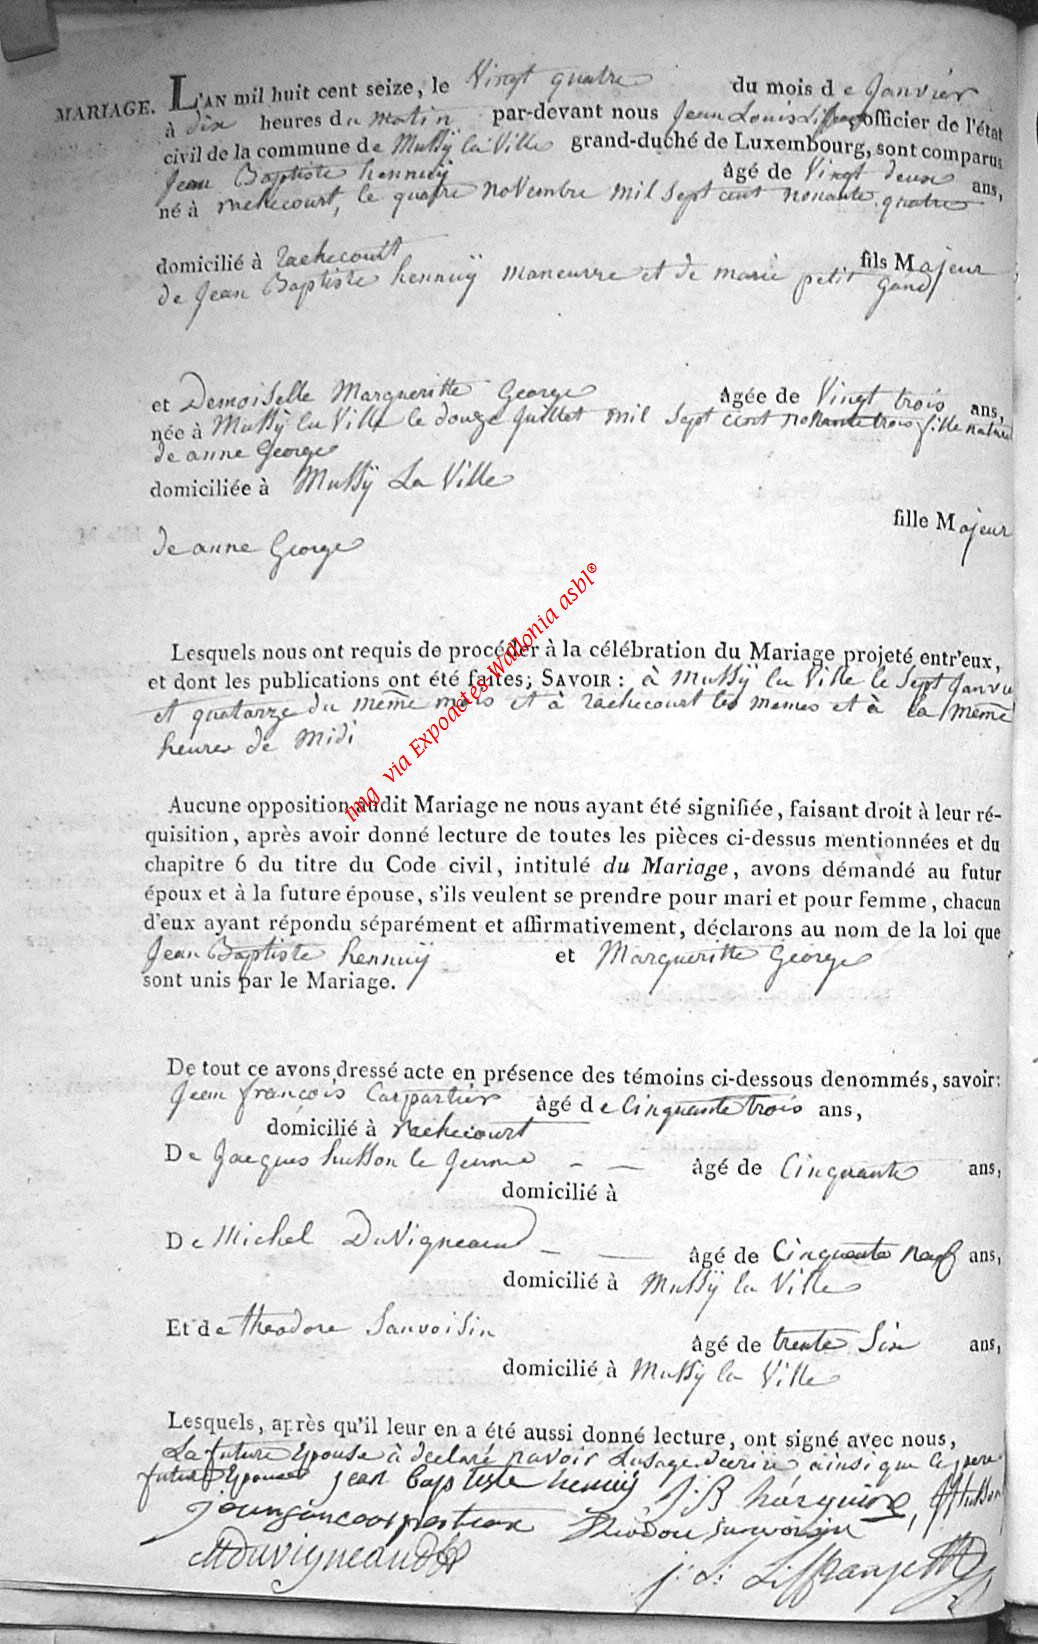 MARIAGE. L'AN mil huit cent seize, le Vingt quatre du mois de Janvier
à dix heures du matin par-devant nous Jean Louis officier de l'état
civil de la commune de Mussÿ la Ville grand-duché de Luxembourg, sont comparus
Jean Baptiste hennuÿ âgé de Vingt deux ans,
né à rachecourt, le quatre novembre mil sept cent nonante quatre
domicilié à rachecourt fils Majeur
de Jean Baptiste hennuÿ maneuvre et de marie petit
et Demoiselle Margueritte George Agée de Vingt trois ans,
née à Mussÿ la Ville le douze Juillet mil sept cent nonante trois fille
de anne George
domiciliée à Mussÿ La Ville
fille Majeur
de anne George
Lesquels nous ont requis de procéder à la célébration du Mariage projeté entr'eux,
et dont les publications ont été faites; SAVOIR : à Mussÿ la Ville le Sept Janvier
et quatorze du même mois et à rachecourt les memes et à la même
heures de Midi
img via Expoactes Wallonia asbl®
Aucune opposition audit Mariage ne nous ayant été signifiée, faisant droit à leur ré-
quisition, après avoir donné lecture de toutes les pièces ci-dessus mentionnées et du
chapitre 6 du titre du Code civil, intitulé du Mariage, avons démandé au futur
époux et à la future épouse, s'ils veulent se prendre pour mari et pour femme, chacun
d'eux ayant répondu séparément et affirmativement, déclarons au nom de la loi que
Jean Baptiste hennuÿ et Margueritte George
sont unis par le Mariage.
De tout ce avons dressé acte en présence des témoins ci-dessous denommés, savoir:
Jean françois Carpartier âgé de Cinquante trois ans,
domicilié à rachecourt
De Jacques husson le Jeune âgé de Cinquante ans,
domicilié à
De Michel DuVigneaud âgé de Cinquante neuf ans,
domicilié à Mussÿ la Ville
Et de theodore Sanvoisin âgé de trente Six ans,
domicilié à Mussÿ la Ville
Lesquels, après qu'il leur en a été aussi donné lecture, ont signé avec nous,
La future Epouse à declaré navoir Lusage decrire ainsi que le pere
futur Epouse jean baptiste hennuÿ
Theodore sanvoisin
Mduvigneaud